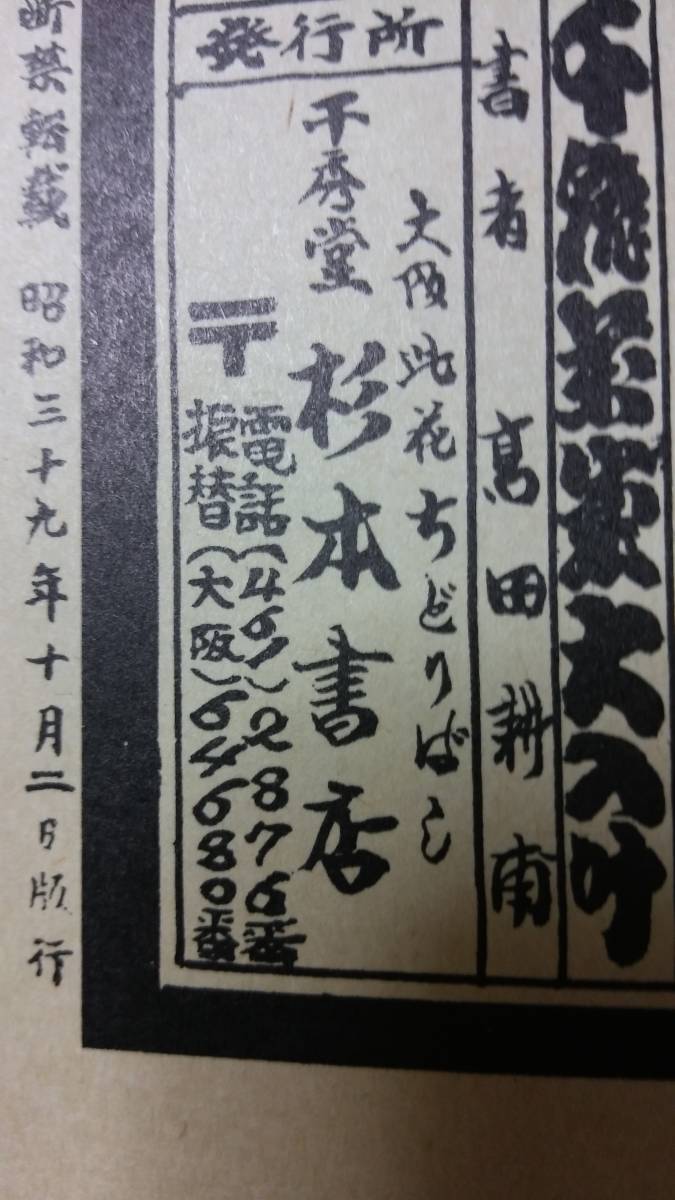 千飛萬來大入叶
書者 高田耕甫
発行所
大阪此花ちどりばし
千秀堂 杉本書店
〒
電話(461)2876番
振替(大阪)64680番
断禁転載 昭和三十九年十月二日版行